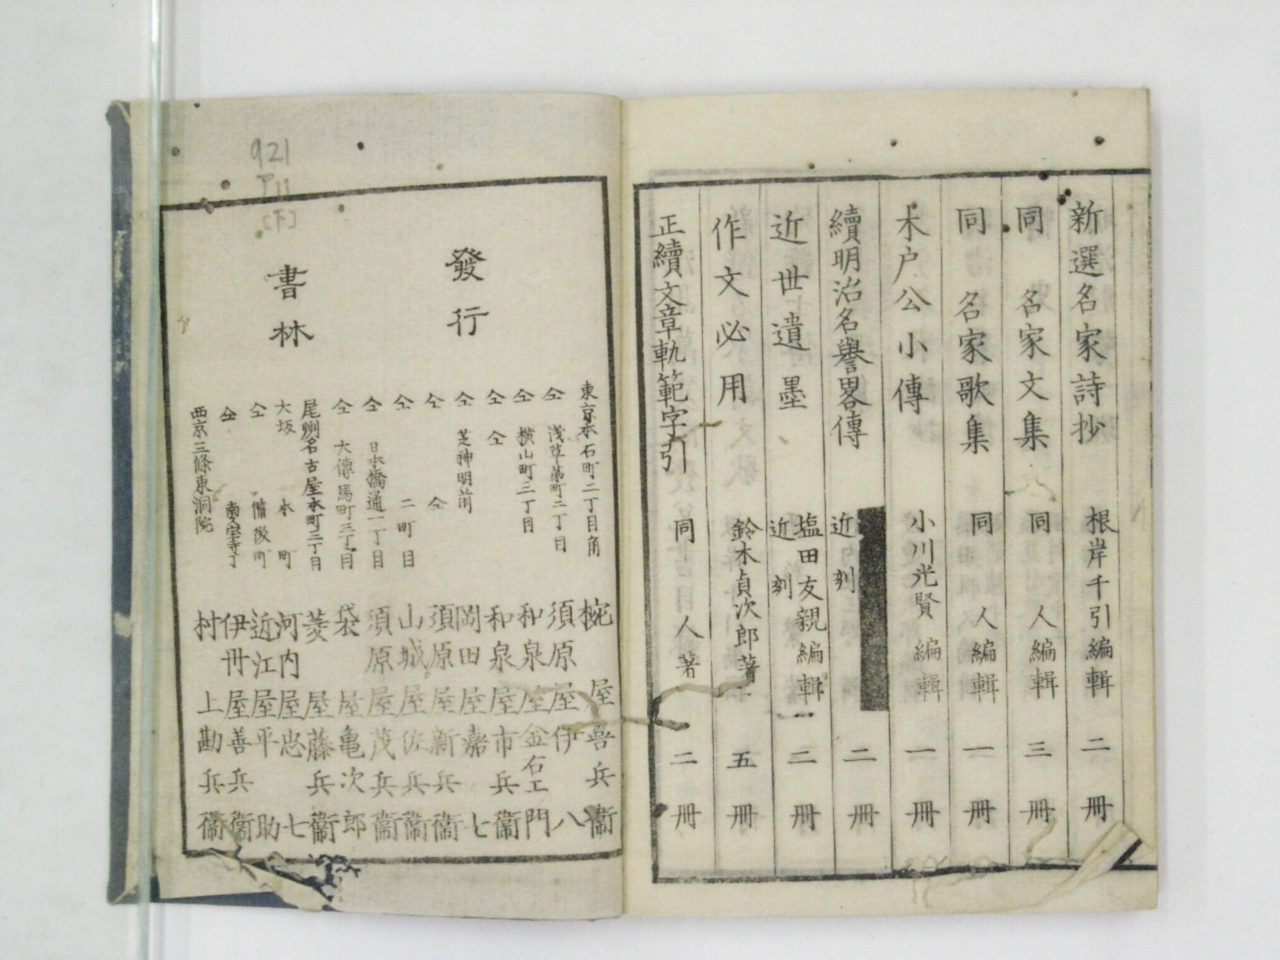 新選名家詩抄 根岸千引編輯 二冊
同 名家文集 同人編輯 三冊
同 名家歌集 同人編輯 一冊
木户公小傳 小川光賢編輯 一冊
續明治名譽畧傳 近刻 二冊
近世遺墨 塩田友親編輯 近刻 二冊
作文必用 鈴木貞次郎著 五冊
正續文章軌範字引 同人著 二冊
921
T11
[下]
發行
書林
東京本石町二丁目角 椀屋喜兵衞
仝 浅草第町二丁目 須原屋伊八
仝 横山町三丁目 和泉屋金右工門
仝 仝 和泉屋市兵衞
仝 芝神明前 岡田屋嘉七
仝 仝 須原屋新兵衞
仝 二町目 山城屋佐兵衞
仝 日本橋通一丁目 須原屋茂兵衞
仝 大傳馬町三丁目 袋屋亀次郎
尾州名古屋本町三丁目 菱屋藤兵衞
大坂 本町 河内屋忠七
仝 備後町 近江屋平助
仝 南久宝寺丁 伊丹屋善兵衞
西京三條東洞院 村上勘兵衞